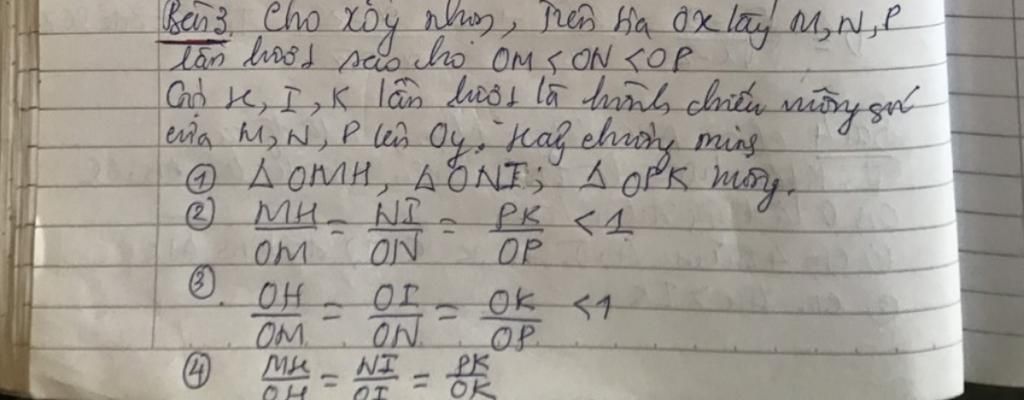 Bài 3. Cho xOy nhọn, Trên tia Ox lấy M, N, P
lần lượt sao cho OM < ON < OP
Gọi H, I, K lần lượt là hình chiếu vuông góc
của M, N, P lên Oy. Hãy chứng minh
① Δ OMH, Δ ONI; Δ OPK vuông.
② MH/OM = NI/ON = PK/OP < 1
③ OH/OM = OI/ON = OK/OP < 1
④ MH/OH = NI/OI = PK/OK